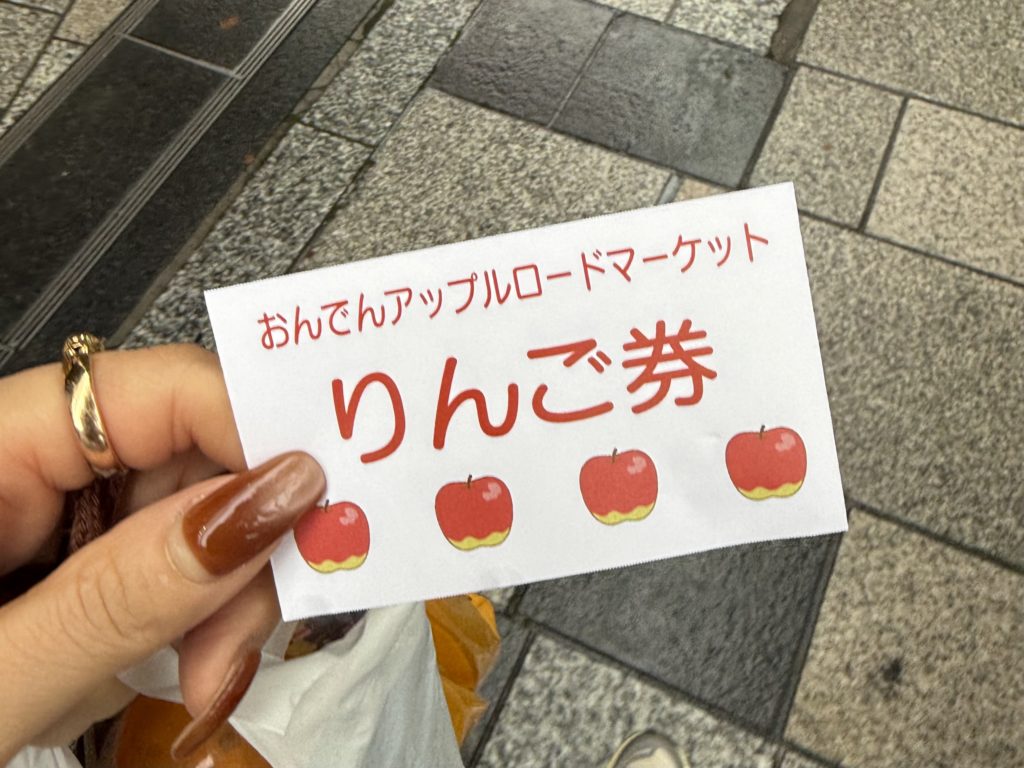 おんでんアップルロードマーケット
りんご券